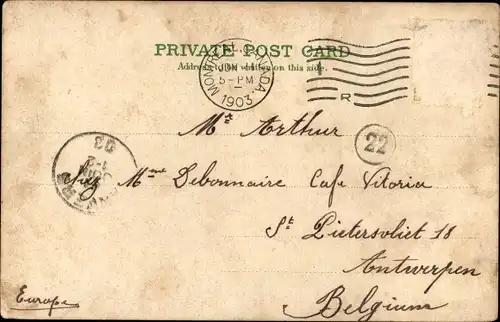 PRIVATE POST CARD
Address to be written on this side.
MONTREAL, CANADA.
JUN 1
5-PM
1903
R
Mr Arthur
22
03
Mme Debonnaire Cafe Vitoria
St Pietersvliet 18
Antwerpen
Europe
Belgium